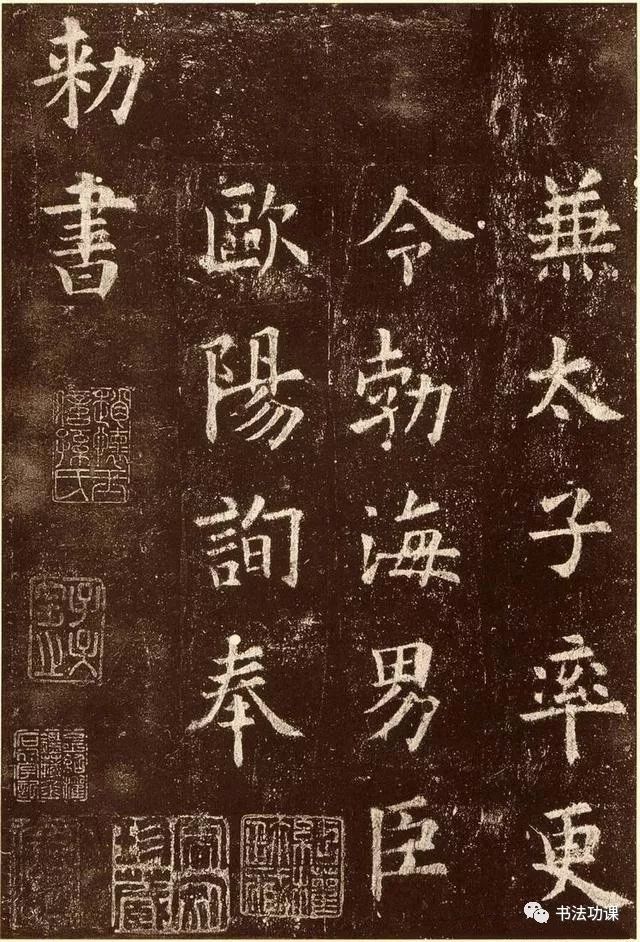 兼太子率更
令勃海男臣
歐陽詢奉
勅書
书法功课